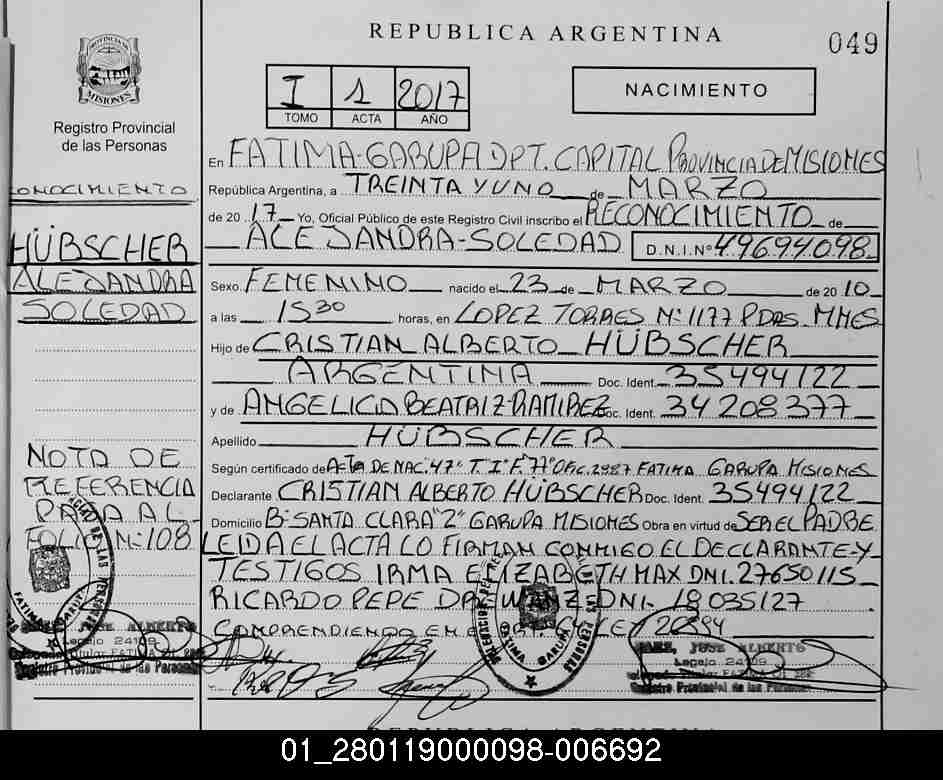 REPUBLICA ARGENTINA
049
PROVINCIA DE
MISIONES
Registro Provincial
de las Personas
I 1 2017
TOMO ACTA AÑO
NACIMIENTO
ONOCIMIENTO
HÜBSCHER
ALEJANDRA
SOLEDAD
NOTA DE
REFERENCIA
PASA AL
FOLIO Nº 108
En FATIMA-GARUPA DPT. CAPITAL PROVINCIA DE MISIONES
República Argentina, a TREINTA Y UNO de MARZO
de 2017 Yo, Oficial Público de este Registro Civil inscribo el RECONOCIMIENTO de
ALEJANDRA-SOLEDAD D.N.I.Nº 49694098
Sexo FEMENINO nacido el 23 de MARZO de 2010
a las 15 30 horas, en LOPEZ TORRES Nº 1177 PDAS. MNES
Hijo de CRISTIAN ALBERTO HÜBSCHER
ARGENTINA Doc. Ident. 35494122
y de ANGELICA BEATRIZ-RAMIREZ Doc. Ident. 34208377
Apellido HÜBSCHER
Según certificado de ACTA DE NAC. 47º T. I º F. 77º OFIC. 2987 FATIMA GARUPA MISIONES
Declarante CRISTIAN ALBERTO HÜBSCHER Doc. Ident. 35494122
Domicilio Bº SANTA CLARA "2" GARUPA MISIONES Obra en virtud de SER EL PADRE
LEIDA EL ACTA LO FIRMAN CONMIGO EL DECLARANTE-Y
TESTIGOS IRMA ELIZABETH MAX DNI. 27650115
RICARDO PEPE DNI. 18035127
COMPRENDIENDO EN
JOSE ALBERTO
Legajo 24109
Registro Provincial de las Personas
JOSE ALBERTO
Legajo 24109
Registro Provincial de las Personas
REPUBLICA ARGENTINA
01_280119000098-006692